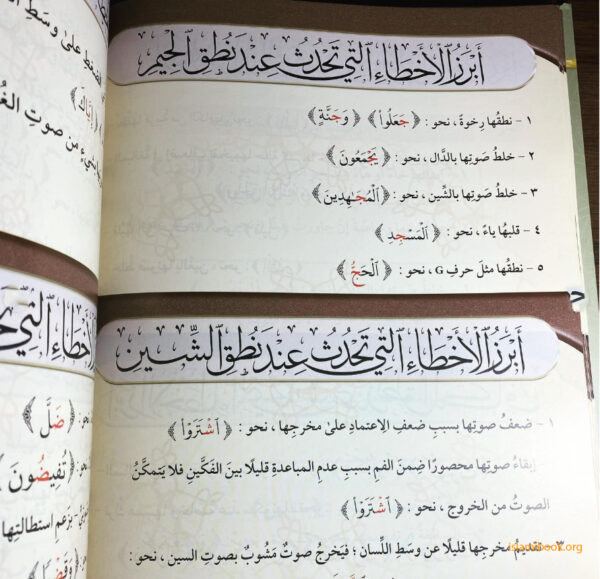 أَبْرَزُ ٱلْأَخْطَاءِ ٱلَّتِي تَحْدُثُ عِنْدَ نُطْقِ ٱلْجِيمِ
١ - نطقُها رِخوةً ، نحو : ﴿ جَعَلُواْ ﴾ ﴿ وَجَنَّةٍ ﴾
٢ - خلطُ صَوتِها بالدَّال ، نحو : ﴿ يَجْمَعُونَ ﴾
٣ - خلطُ صَوتِها بالشِّين ، نحو : ﴿ ٱلْمُجَـٰهِدِينَ ﴾
٤ - قلبُها ياءً ، نحو : ﴿ ٱلْمَسْجِدِ ﴾
٥ - نطقُها مثلَ حرفِ G ، نحو : ﴿ ٱلْحَجُّ ﴾
أَبْرَزُ ٱلْأَخْطَاءِ ٱلَّتِي تَحْدُثُ عِنْدَ نُطْقِ ٱلشِّينِ
١ - ضعفُ صوتِها بسببِ ضعفِ الِاعتمادِ علىٰ مخرجِها ، نحو : ﴿ ٱشْتَرَوُاْ ﴾
إبقاءُ صوتِها محصورًا ضِمنَ الفمِ بسببِ عدمِ المباعدةِ قليلًا بينَ الفَكَّينِ فلا يَتمكَّنُ
الصوتُ من الخروج ، نحو : ﴿ ٱشْتَرَوُاْ ﴾
٣ - تقديمُ مخرجِها قليلًا عن وسَطِ اللِّسان ؛ فيَخرجُ صوتٌ مَشُوبٌ بصوتِ السين ، نحو :
علىٰ وسَطِ
﴿ إِيَّاكَ ﴾
من صوتِ
نحو : ﴿ ضَلَّ ﴾
نحو : ﴿ تُفِيضُونَ ﴾
استطالتِها